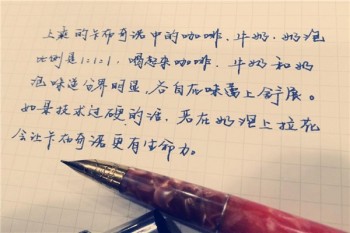 上乘的卡布奇诺中的咖啡、牛奶、奶泡
比例是1:1:1，喝起来咖啡、牛奶和奶
泡味道分界明显，各自在味蕾上舒展。
如果技术过硬的话，若在奶泡上拉花
会让卡布奇诺更有生命力。